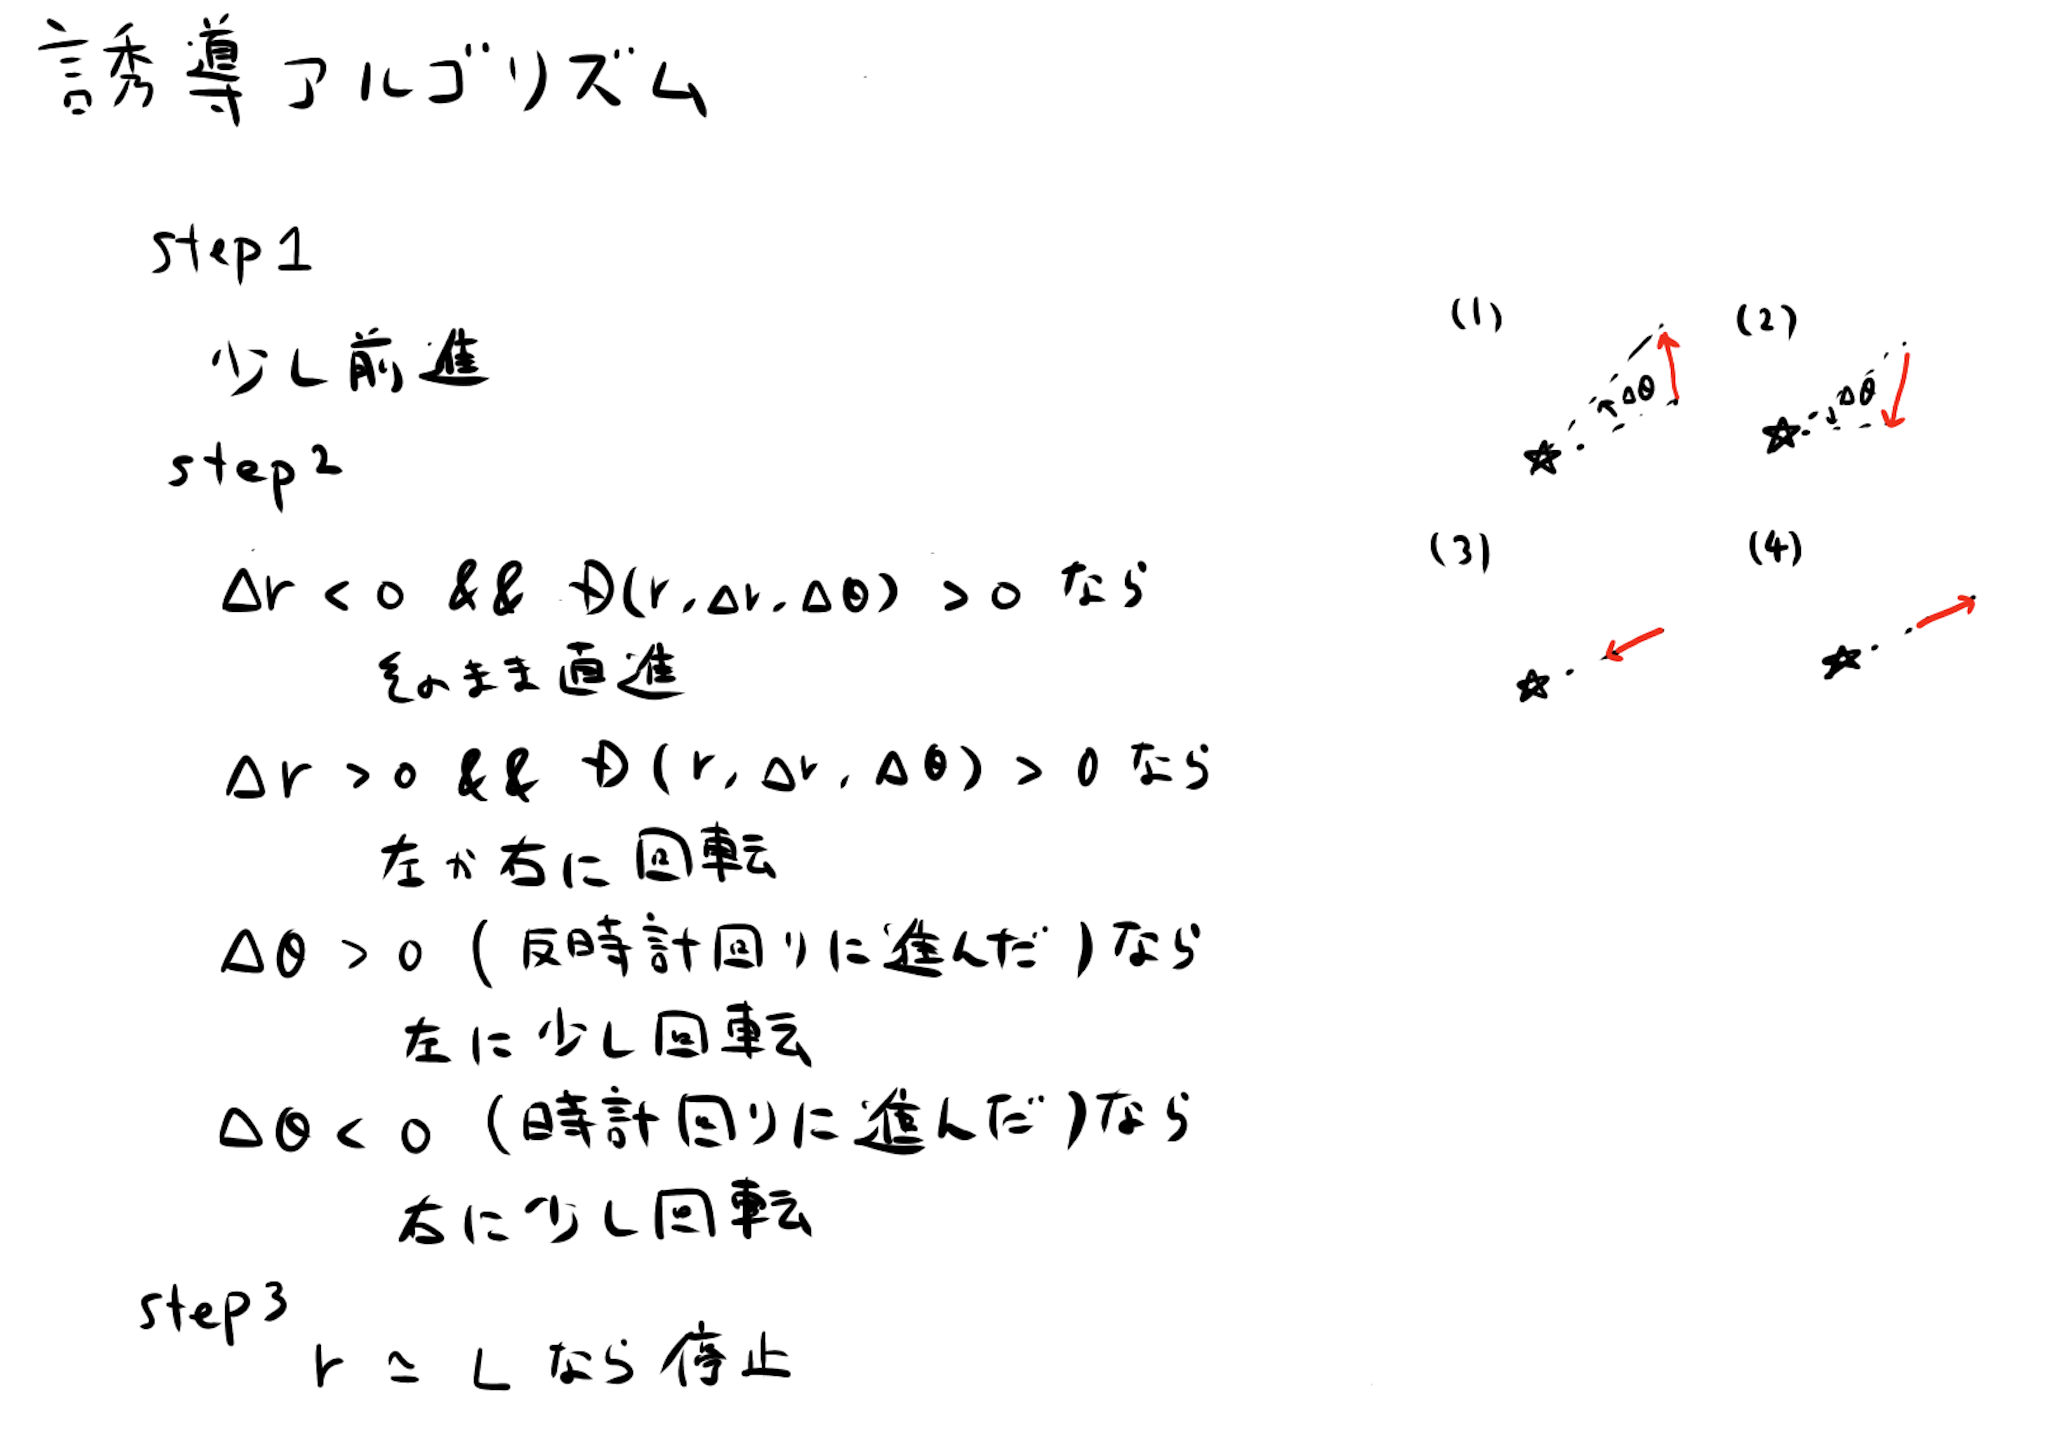 誘導アルゴリズム
step1
少し前進
step2
Δr < 0 && D(r, Δr, Δθ) > 0 なら
そのまま直進
Δr > 0 && D(r, Δr, Δθ) > 0 なら
左か右に回転
Δθ > 0 (反時計回りに進んだ)なら
左に少し回転
Δθ < 0 (時計回りに進んだ)なら
右に少し回転
step3
r ≃ L なら停止
(1)
Δθ
(2)
Δθ
(3)
(4)